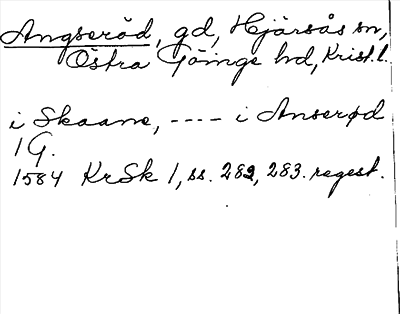 Angseröd, gd, Hjärsås sn,
Östra Göinge hd, Krist. l.
i Skaane, ---- i Anserød
1 G.
1584 KrSk 1, ss. 282, 283. regest.